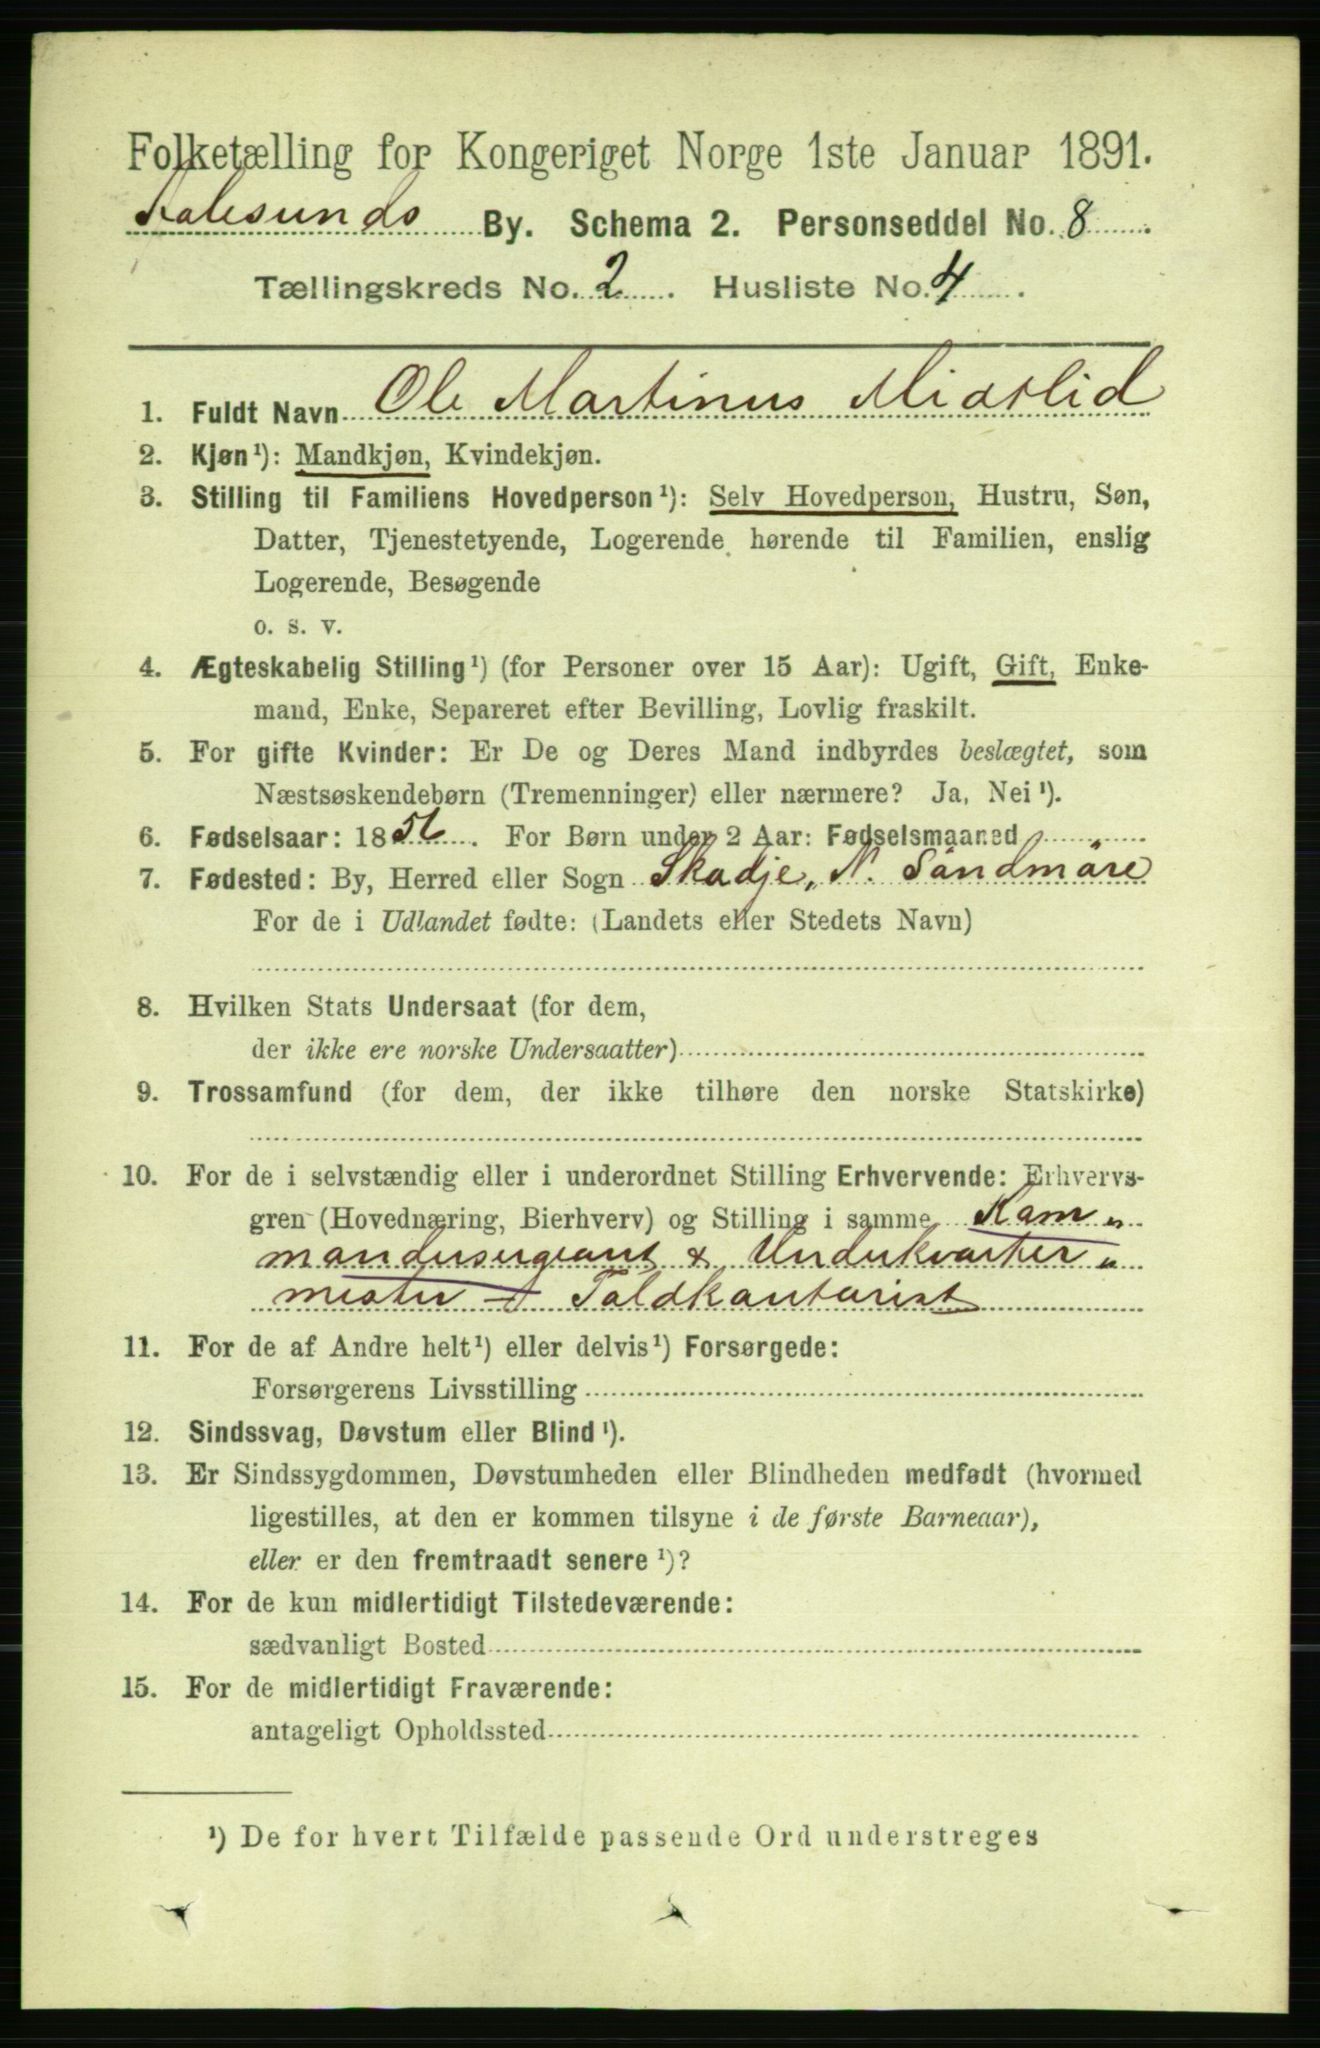 Folketælling for Kongeriget Norge 1ste Januar 1891.
Aalesunds By. Schema 2. Personseddel No. 8
Tællingskreds No. 2. Husliste No. 4.
1. Fuldt Navn Ole Martinus Midtlid
2. Kjøn¹): Mandkjøn, Kvindekjøn.
3. Stilling til Familiens Hovedperson¹): Selv Hovedperson, Hustru, Søn,
Datter, Tjenestetyende, Logerende hørende til Familien, enslig
Logerende, Besøgende
o. s. v.
4. Ægteskabelig Stilling¹) (for Personer over 15 Aar): Ugift, Gift, Enke-
mand, Enke, Separeret efter Bevilling, Lovlig fraskilt.
5. For gifte Kvinder: Er De og Deres Mand indbyrdes beslægtet, som
Næstsøskendebørn (Tremenninger) eller nærmere? Ja, Nei¹).
6. Fødselsaar: 1856. For Børn under 2 Aar: Fødselsmaaned
7. Fødested: By, Herred eller Sogn Skodje, N. Söndmöre
For de i Udlandet fødte: (Landets eller Stedets Navn)
8. Hvilken Stats Undersaat (for dem,
der ikke ere norske Undersaatter)
9. Trossamfund (for dem, der ikke tilhøre den norske Statskirke)
10. For de i selvstændig eller i underordnet Stilling Erhvervende: Erhvervs-
gren (Hovednæring, Bierhverv) og Stilling i samme Kom„
mandersergeant & Underkvarter„
mester + Toldkontorist
11. For de af Andre helt¹) eller delvis¹) Forsørgede:
Forsørgerens Livsstilling
12. Sindssvag, Døvstum eller Blind¹).
13. Er Sindssygdommen, Døvstumheden eller Blindheden medfødt (hvormed
ligestilles, at den er kommen tilsyne i de første Barneaar),
eller er den fremtraadt senere¹)?
14. For de kun midlertidigt Tilstedeværende:
sædvanligt Bosted
15. For de midlertidigt Fraværende:
antageligt Opholdssted
¹) De for hvert Tilfælde passende Ord understreges